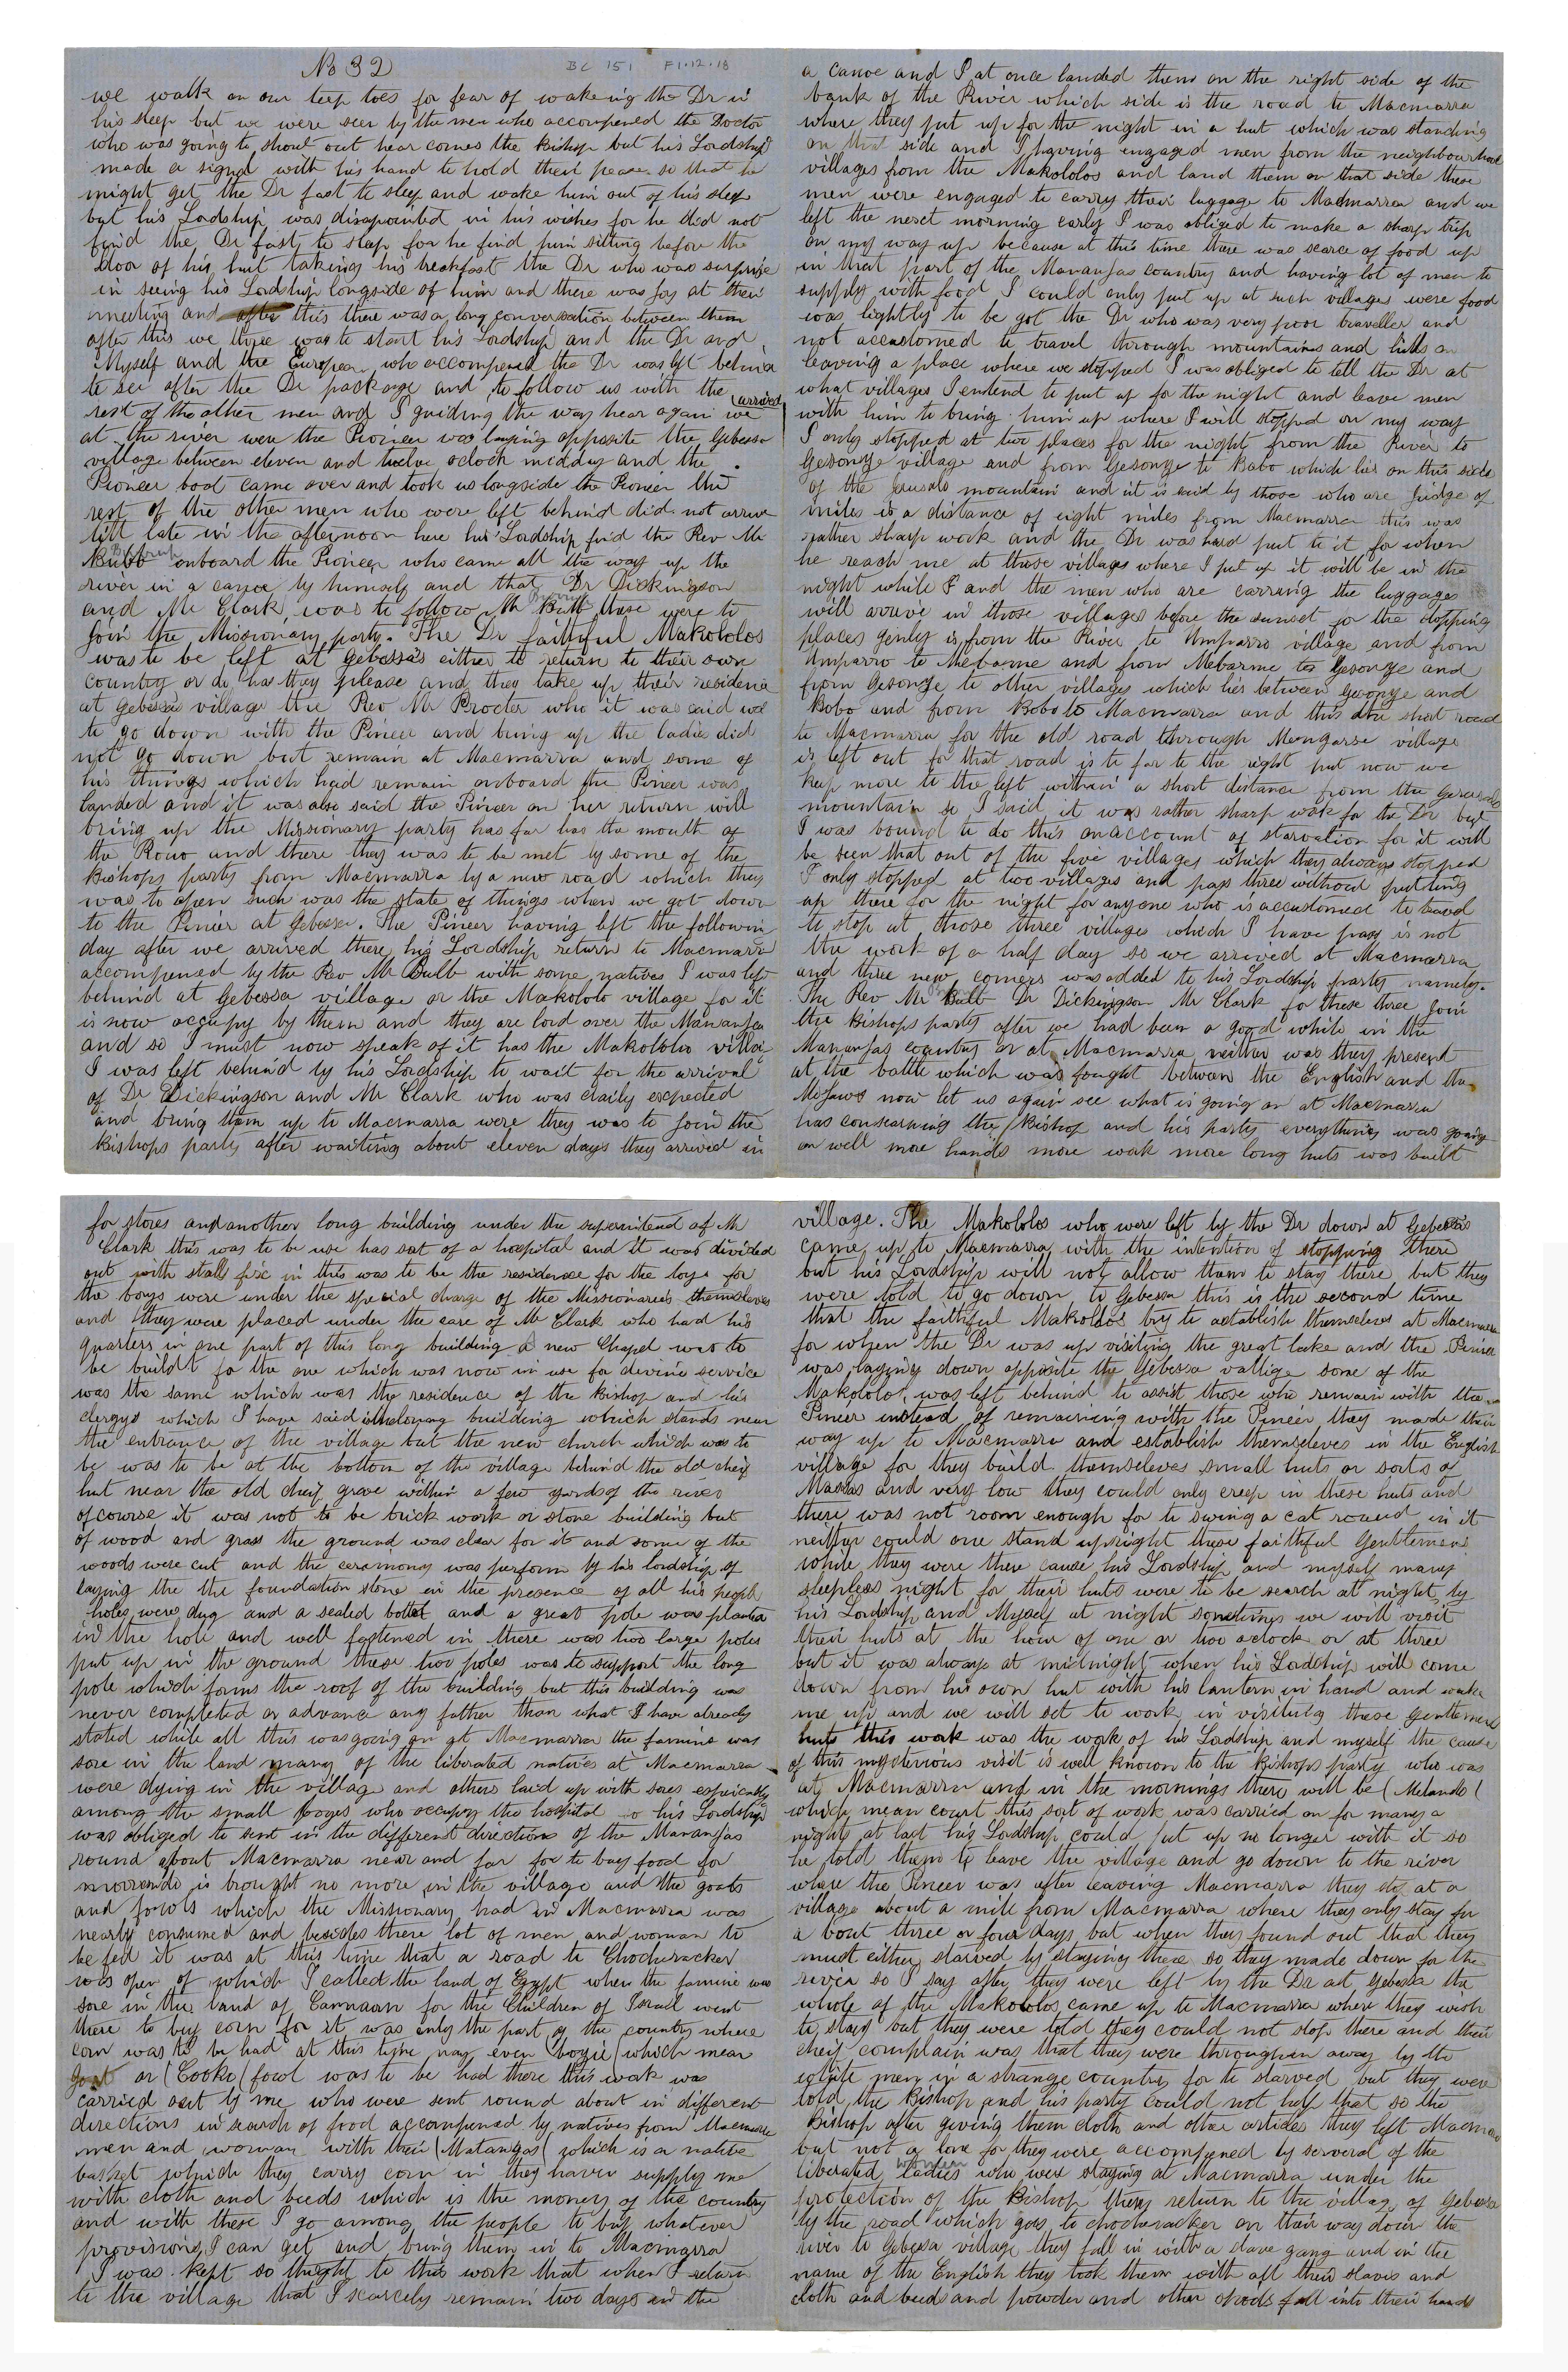 No 32
BC 151 F1.12.18
we walk on our teep toes for fear of wakeing the Dr in
his sleep but we were seen by the men who accompened the Doctor
who was going to shout out hear comes the Bishop but his Lordship
made a signal with his hand to hold their peace so that he
might get the Dr fast to sleep and wake him out of his sleep
but his Lordship was disapointed in his wishes for he did not
find the Dr fast to sleep for he find him sitting before the
door of his hut taking his breakfast the Dr who was surprise
in seeing his Lordship longside of him and there was joy at their
meeting and after this there was a long conversation between them
after this we three was to start his Lordship and the Dr and
Myself and the European who accompened the Dr was left behind
to see after the Dr package and to follow us with the
rest of the other men and I guiding the way hear again we arrived
at the river were the Pioneer was laying opposite the Gebessa
village between eleven and twelve oclock midday and the
Pioneer boat came over and took us longside the Pioneer the
rest of the other men who were left behind did not arrive
till late in the afternoon here his Lordship find the Rev Mr
Bulb onboard the Pioneer who came all the way up the
river in a canoe by himself and that Dr Dickingson
and Mr Clark was to follow Mr Bulb these were to
join the Missionary party. The Dr faithful Makololos
was to be left at Gebessa's either to return to their own
country or do has they please and they take up their residence
at Gebessa village the Rev Mr Procter who it was said was
to go down with the Pineer and bring up the ladies did
not go down but remain at Macmarra and some of
his things which had remain onboard the Pineer was
landed and it was also said the Pineer on her return will
bring up the Missionary party has far has the mouth of
the Rouo and there they was to be met by some of the
Bishops party from Macmarra by a new road which they
was to open such was the state of things when we got down
to the Pinier at Gebessa. The Pineer having left the following
day after we arrived there his Lordship return to Macmarra
accompened by the Rev Mr Bulb with some natives I was left
behind at Gebessa village or the Makololo village for it
is now occupy by them and they are lord over the Mananjas
and so I must now speak of it has the Makololo village
I was left behind by his Lordship to wait for the arrival
of Dr Dickingson and Mr Clark who was daily expected
and bring them up to Macmarra were they was to join the
Bishops party after waiting about eleven days they arrived in
a canoe and I at once landed them on the right side of the
bank of the River which side is the road to Macmarra
where they put up for the night in a hut which was standing
on that side and I having engaged men from the neighbourhood
villages from the Makololos and land them on that side these
men were engaged to carry their luggage to Macmarra and we
left the next morning early I was obliged to make a sharp trip
on my way up because at this time there was scarce of food up
in that part of the Mananjas country and having lot of men to
supply with food I could only put up at such villages were food
was lightly to be got the Dr who was very poor traveller and
not accustomed to travel through mountains and hills on
leaving a place where we stopped I was obliged to tell the Dr at
what villages I entend to put up for the night and leave men
with him to bring him up where I will stopped on my way
I only stopped at two places for the night from the River to
Gesonge village and from Gesonge to Babo which lies on this side
of the mountain and it is said by those who are judge of
miles is a distance of eight miles from Macmarra this was
rather sharp work and the Dr was hard put to it for when
he reach me at those villages where I put up it will be in the
night while I and the men who are carring the luggages
will arrive in those villages before the sunset for the stopping
places is from the River to Amparro village and from
Amparro to Mebarme and from Mebarme to Gesonge and
from Gesonge to other villages which lies between Gesonge and
Bobo and from Bobo to Macmarra and this the short road
to Macmarra for the old road through Mongasse village
is left out for that road is to far to the right put now we
keep more to the left within a short distance from the
mountain so I said it was rather sharp work for the Dr but
I was bound to do this onaccount of starvation for it will
be seen that out of the five villages which they always stopped
I only stopped at two villages and pass three without putting
up there for the night for anyone who is accustomed to travel
to stop at those three villages which I have pass is not
the work of a half day so we arrived at Macmarra
and three new comers was added to his Lordship party namely.
The Rev Mr Bulb Dr Dickingson Mr Clark for these three join
the Bishops party after we had been a good while in the
Mananjas country or at Macmarra neither was they present
at the battle which was fought between the English and the
Mejaws now let us again see what is going on at Macmarra
has consearning the Bishop and his party everything was going
on well more hands more work more long huts was built
for stores and another long building under the superintend of Mr
Clark this was to be use has sort of a hospital and it was divided
out with stalls fix in this was to be the residence for the boys for
the boys were under the special charge of the Missionaries themseleves
and they were placed under the care of Mr Clark who had his
quarters in one part of this long building A new Chapel was to
be buildt for the one which was now in use for devine service
was the same which was the residence of the Bishop and his
clergys which I have said building which stands near
the entrance of the village but the new church which was to
be was to be at the bottom of the village behind the old cheif
hut near the old cheif grave within a few yards of the river
ofcourse it was not to be brick work or stone building but
of wood and grass the ground was clear for it and some of the
woods were cut and the ceramony was perform by his lordship of
laying the the foundation stone in the presence of all his people
holes were dug and a sealed bottel and a great pole was planted
in the hole and well fastened in there was two large poles
put up in the ground these two poles was to support the long
pole which forms the roof of the building but this building was
never completed or advance any futher than what I have already
stated while all this was going on at Macmarra the famine was
sore in the land many of the liberated natives at Macmarra
were dying in the village and others laid up with sores espicially
among the small boyes who occupy the hospital so his Lordship
was obliged to sent in the different directions of the Mananjas
round about Macmarra near and far for to buy food for
is brought no more in the village and the goats
and fowls which the Missionary had in Macmarra was
nearly consumed and besides there lot of men and woman to
be fed it was at this time that a road to Chocheracker
was open of which I called the land of Egypt when the famine was
sore in the land of Cannaan for the Children of Israel went
there to buy corn for it was only the part of the country where
corn was to be had at this time nay even (boozie) which mean
goat or (Cooko( fowl was to be had there this work was
carried out by me who were sent round about in different
directions in search of food accompened by natives from Macmarra
men and woman with their (Matangas( which is a native
basket which they carry corn in they haver supply me
with cloth and beeds which is the money of the country
and with these I go among the people to buy whatever
provisions I can get and bring them in to Macmarra
I was kept so thight to this work that when I return
to the village that I scarcely remain two days in the
village. The Makololos who were left by the Dr down at Gebessas
came up to Macmarra with the intention of stopping there
but his Lordship will not allow them to stay there but they
were told to go down to Gebessa this is the second time
that the faithful Makololos try to establish themselves at Macmarra
for when the Dr was up visiting the great lake and the Pineer
was laying down opposite the Gebessa vallige some of the
Makololos was left behind to assist those who remain with the
Pineer instead of remaining with the Pineer they made their
way up to Macmarra and establish themseleves in the English
village for they build themseleves small huts or sorts of
Massas and very low they could only creep in these huts and
there was not room enough for to swing a cat round in it
neither could one stand upright these faithful Gentlemens
while they were there cause his Lordship and myself many
sleepless night for their huts were to be search at night by
his Lordship and Myself at night sometimes we will visit
their huts at the hour of one or two oclock or at three
but it was always at midnight when his Lordship will come
down from his own hut with his lantern in hand and wake
me up and we will set to work in visiting these Gentlemens
huts this work was the work of his Lordship and myself the cause
of this mysterious visit is well known to the Bishops party who was
at Macmarra and in the mornings there will be (Melando(
which mean court this sort of work was carried on for many a
night at last his Lordship could put up no longer with it so
he told them to leave the village and go down to the river
where the Pineer was after leaving Macmarra they stop at a
village about a mile from Macmarra where they only stay for
a bout three or four days but when they found out that they
must either starved by staying there so they made down for the
river so I say after they were left by the Dr at Gebessa the
whole of the Makololos came up to Macmarra where they wish
to stay but they were told they could not stop there and their
cheif complain was that they were throughen away by the
white men in a strange country for to starved but they were
told the Bishop and his party could not help that so the
Bishop after giving them cloth and other articles they left Macmarra
but not a lone for they were accompened by serveral of the
liberated ladies women who were staying at Macmarra under the
protection of the Bishop they return to the village of Gebessa
by the road which goes to chocheracker on their way down the
river to Gebessa village they fall in with a slave gang and in the
name of the English they took them with all their slaves and
cloth and beeds and powder and other goods fall into their hands